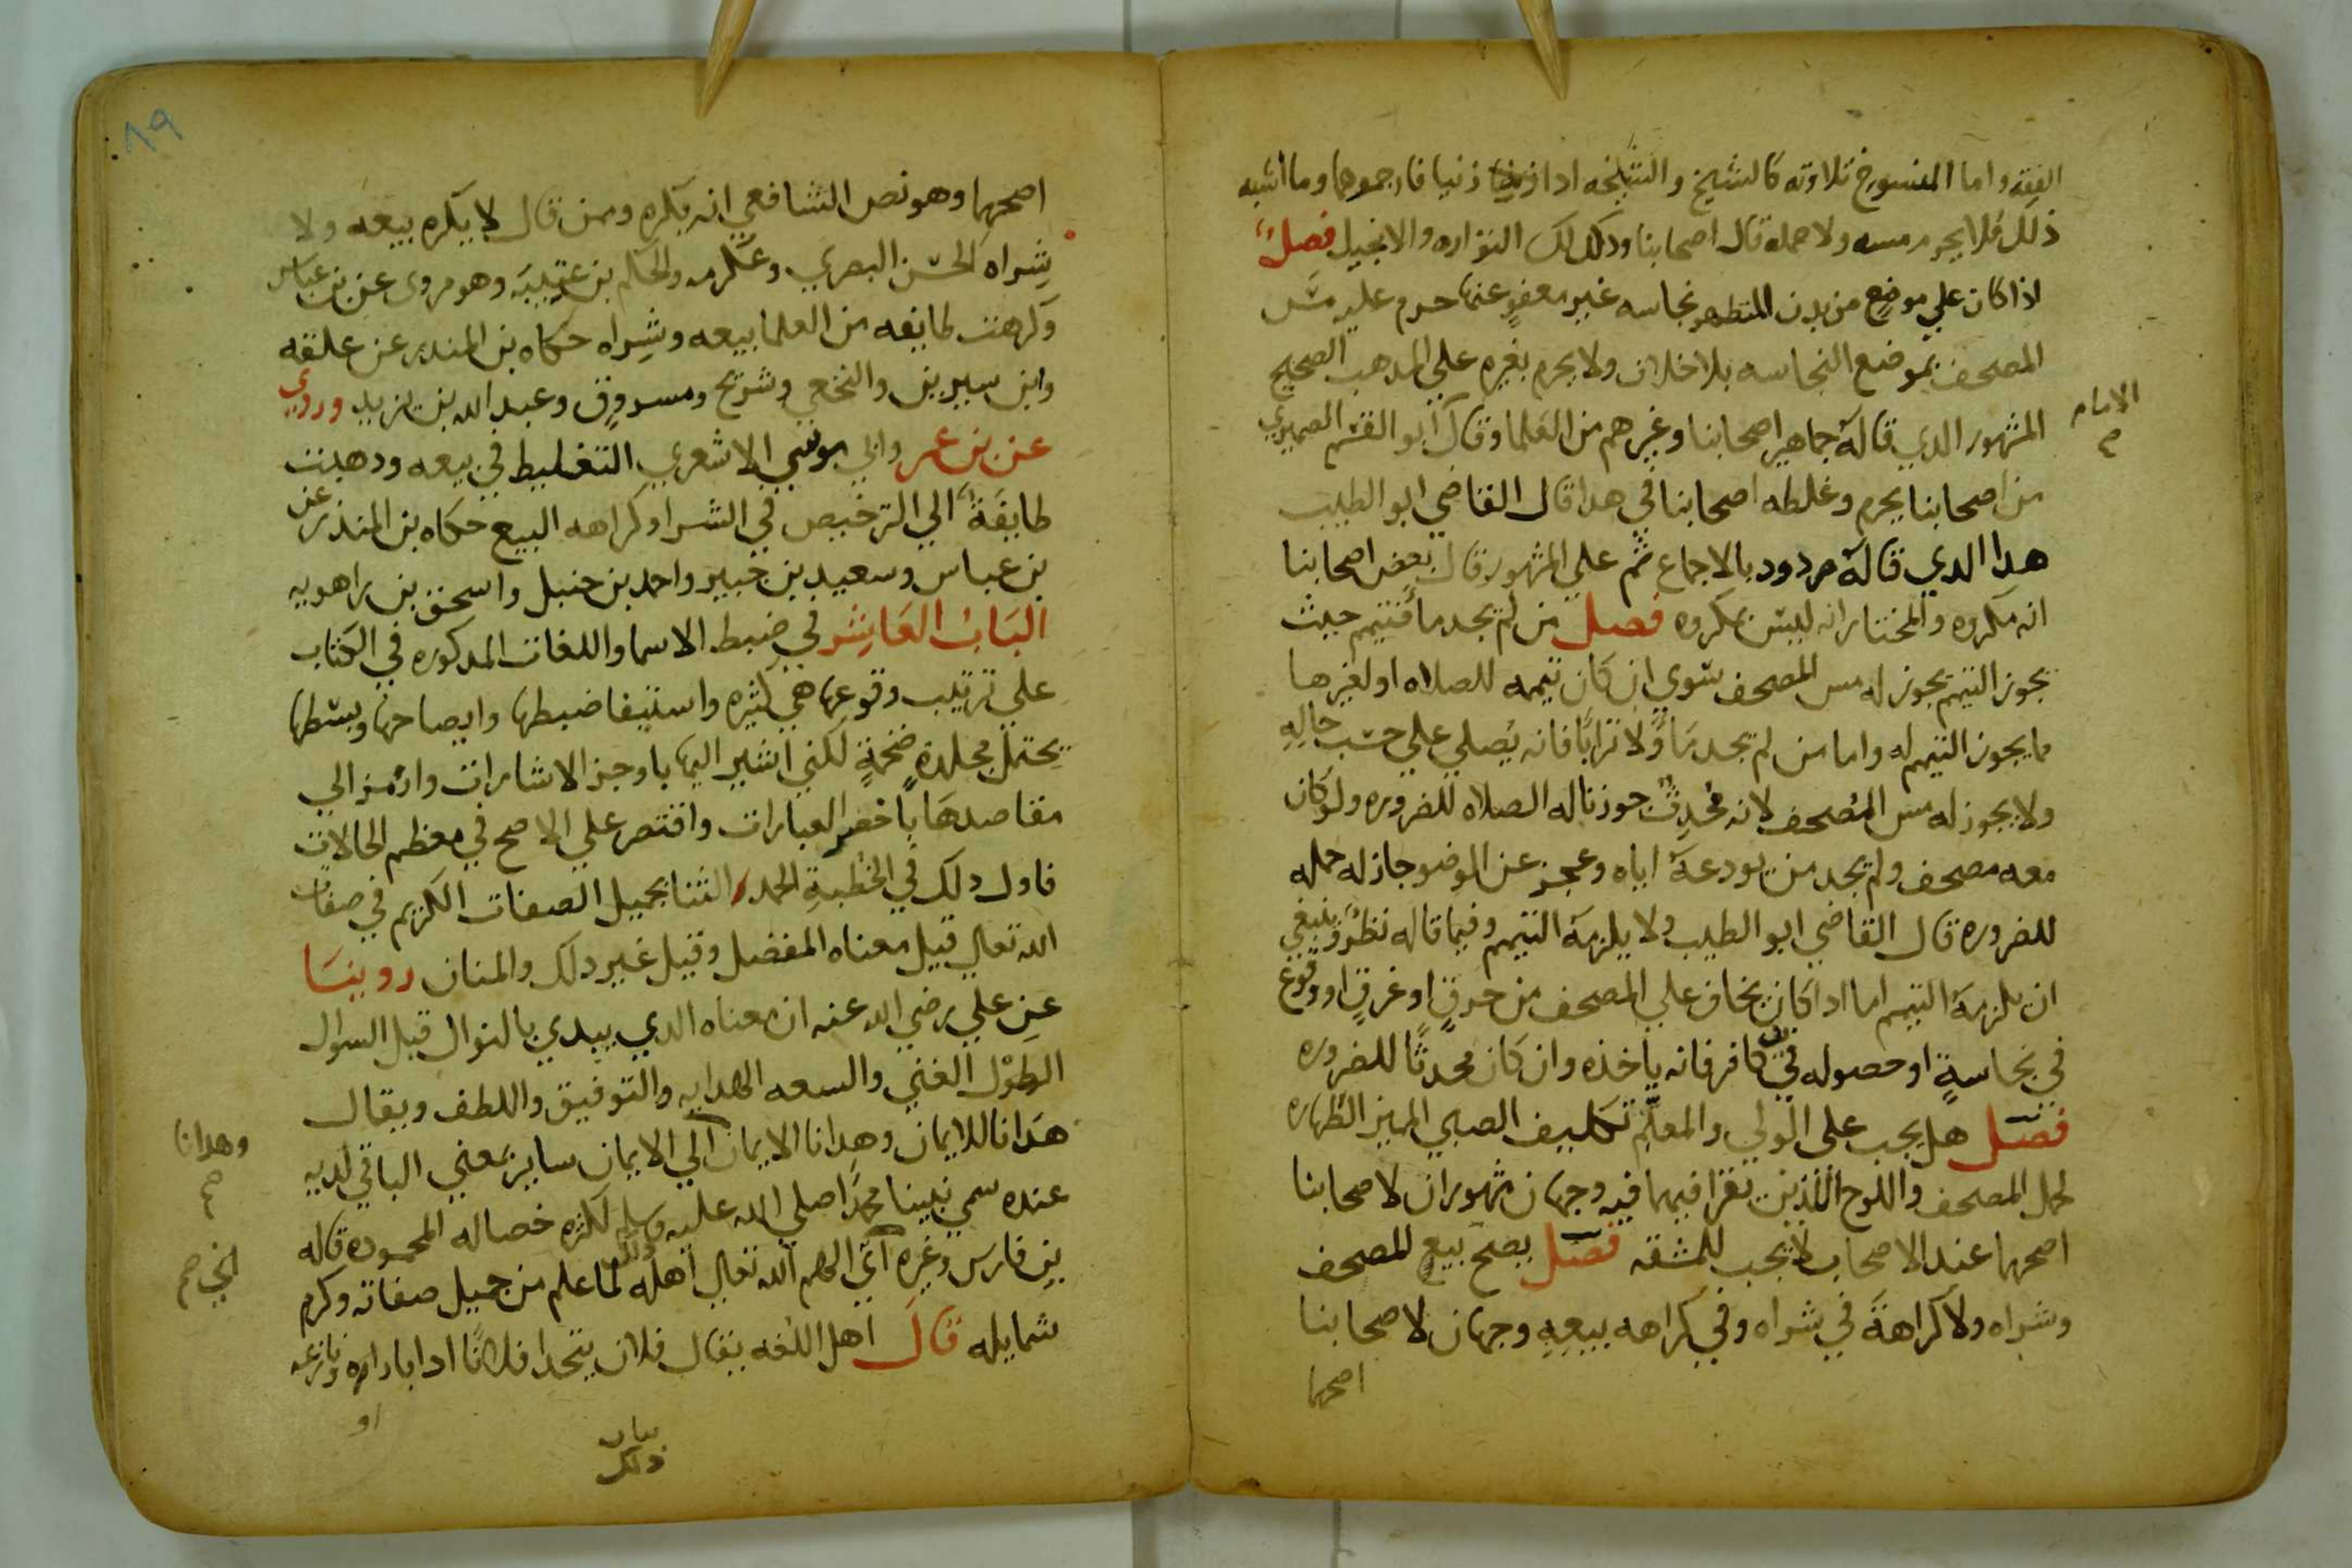 الفقه واما المنسوخ تلاوته كالشيخ والشيخه ادا زنيا فارجموهما وما اشبه
ذلك فلا يحرم مسه ولا حمله قال اصحابنا وكدلك التوراه والانجيل فصل
اذا كان علي موضع من بدن المتطهر نجاسه غير معفو عنها حرم عليه مس
المصحف بموضع النجاسه بلا خلاف ولا يحرم بغيره علي المدهب الصحيح
المشهور الدي قاله جماهير اصحابنا وغيرهم من العلما وقال ابو القسم الصميري
الامام
من اصحابنا يحرم وغلطه اصحابنا في هدا قال القاضي ابو الطيب
هدا الدي قاله مردود بالاجماع ثم علي المشهور قال بعض اصحابنا
انه مكروه والمختار انه ليس بمكروه فصل من لم يجد ما فتيمم حيث
يجوز التيمم يجوز له مس المصحف سوي ان كان تيممه للصلاه او لغيرها
مما يجوز التيمم له واما من لم يجد مَاً ولا ترابًا فانه يُصلي علي حسب حالِهِ
ولا يجوز له مس المُصحف لانه مُحْدِثٌ جوزنا له الصلاه للضروره ولو كان
معه مصحف ولم يجد من يودعه اياه وعجز عن الوضو جاز له حمله
للضروره قال القاضي ابو الطيب ولا يلزمه التيمم وفيما قاله نظرٌ وينبغي
ان يلزمه التيمم اما ادا كان يخاف علي المصحف من حرقٍ او غرقٍ او وقوع
في نجاسةٍ او حصوله في يد كافر فانه ياخذه وان كان محدثًا للضروره
فصل هل يجب على الولي والمعلّم تكليف الصبي المميز الطهاره
لحمل المصحف واللوح اللذين يقرا فيهما فيه وجهان مشهوران لاصحابنا
اصحهما عند الاصحاب لا يجب للمشقه فصل يصح بيع المصحف
وشراه ولا كراهة في شراه وفي كراهه بيعِهِ وجهان لاصحابنا
اصحهما
٨٩
اصحهما وهو نص الشافعي انه يكره وممن قال لا يكره بيعه ولا
شِراه الحسن البصري وعكرمه والحكم بن عتيبَه وهو مروى عن بن عباس
وكرهت طايفه من العلما بيعه وشِراه حكاه بن المندر عن علقمه
وابن سيرين والنخعي وشريح ومسروق وعبد الله بن يزيد وروي
عن بن عمر وابي موسي الاشعري التغليط في بيعه ودهبت
طايفَةٌ الي الترخيص في الشرا وكراهه البيع حكاه بن المنذر عن
بن عباس وسعيد بن جبير واحمد بن حنبل واسحق بن راهويه
البَابُ العَاشِر في ضبط الاسما واللغات المدكوره في الكتاب
علي ترتيب وقوعها هي كثيره واستيفا ضبطها وايضاحها وبسطها
يحتمل مجلدةً ضخمةٍ لكني اشير اليها باوجز الاشارات وارمز الي
مقاصدها باخصر العبارات واقتصر علي الاصح في معظم الحالات
فاول دلك في الخطبةِ الحمد الثنا بجميل الصفات الكريم في صفات
الله تعالي قيل معناه المفضل وقيل غير دلك والمنان روينَا
عن علي رضي الله عنه ان معناه الدي يبدي بالنوال قبل السوال
الطوْل الغني والسعه الهدايه والتوفيق واللطف ويقال
هدانا للايمان وهدانا الايمان الي الايمان ساير بمعني الباقي لديه
وهدانا
صح
عنده سمي نبينا محمدًا صلي الله عليه وسلم لكثره خصاله المحموده قاله
بن فارس وغيره اي الهم الله تعالي اهله لما علم من جميل صفاته وكرم
شمايله قال اهل اللغه يقال فلان يتحدا فلانًا ادا باراه ونازعه
بيان
دلك